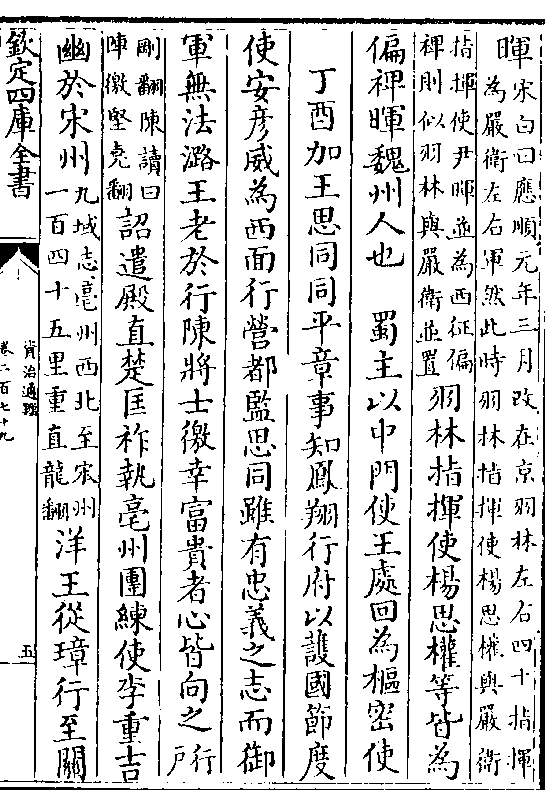 暉
宋白曰應順元年三月改在京羽林左右四十指揮
為嚴衛左右軍然此時羽林指揮使楊思權與嚴衛
指揮使尹暉並為西征偏
裨則似羽林與嚴衛並置
羽林指揮使楊思權等皆為
偏裨暉魏州人也　蜀主以中門使王處回為樞密使
丁酉加王思同同平章事知鳳翔行府以護國節度
使安彦威為西面行營都監思同雖有忠義之志而御
軍無法潞王老於行陳將士徼幸富貴者心皆向之
行
戶
剛翻陳讀曰
陣徼堅堯翻
詔遣殿直楚匡祚執亳州團練使李重吉
幽於宋州
九域志亳州西北至宋州
一百四十五里重直龍翻
洋王從璋行至關
欽定四庫全書
資治通鑑
卷二百七十九
五